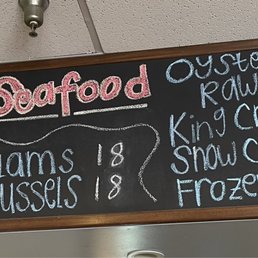 Seafood
ams 18
ussels 18
Oyste
Raw
King Cr
Snow C
Froze